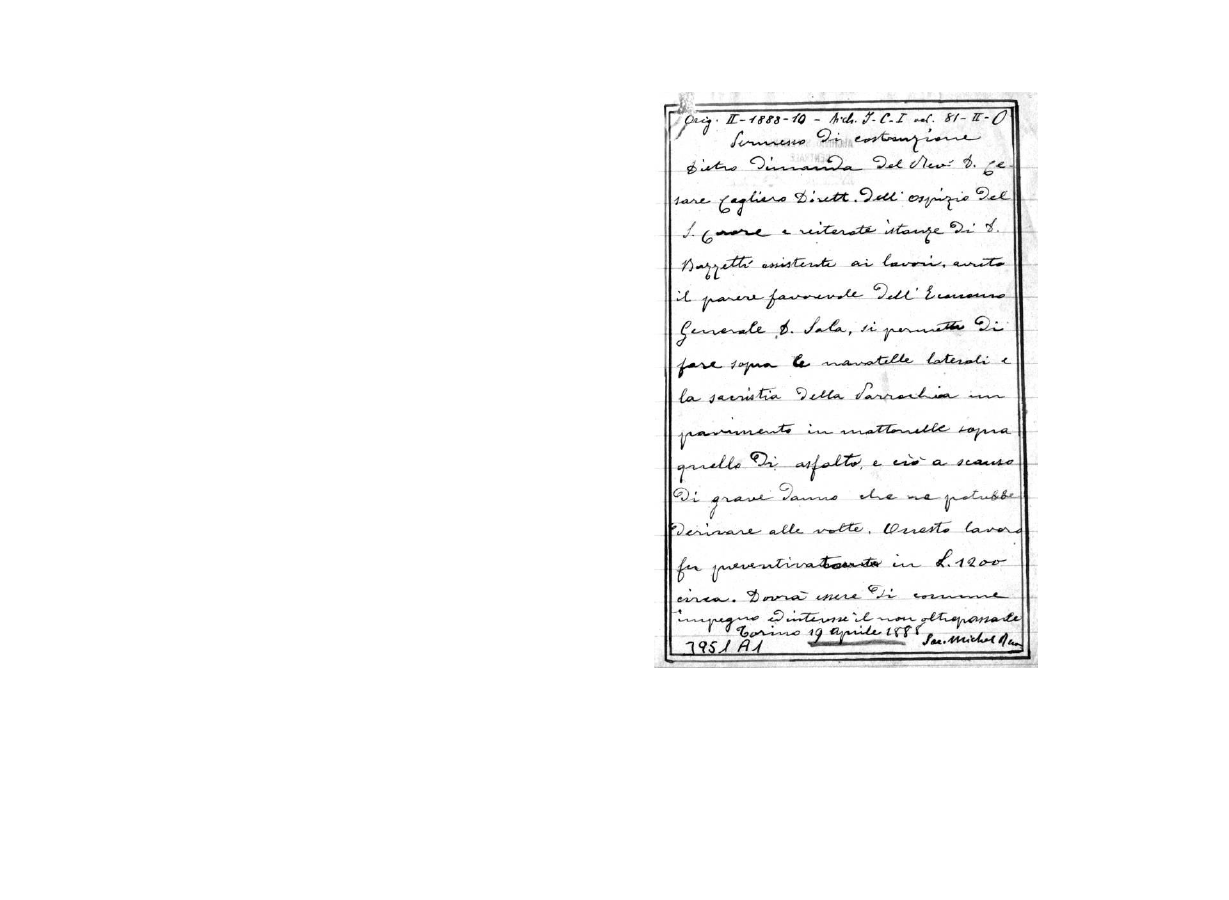 Orig. II-1888-10 - Arch. I-C-I vol. 81-II-O
Permesso di costruzione
Dietro dimanda del Rev. D. Ce-
sare Cagliero Dirett. dell' ospizio del
S. Cuore e reiterate istanze di D.
Bazzetti assistente ai lavori, avuto
il parere favorevole dell' Economo
Generale D. Sala, si permette di
fare sopra le navatelle laterali e
la sacristia della Parrochia un
pavimento in mattonelle sopra
quello di asfalto, e ciò a scanso
di grave danno che ne potrebbe
derivare alle volte. Questo lavoro
fu preventivato in L. 1200
circa. Dovrà essere di comune
impegno ed interesse il non oltrepassarle
Torino 19 Aprile 1888
Sac. Michel Rua
3951 A1